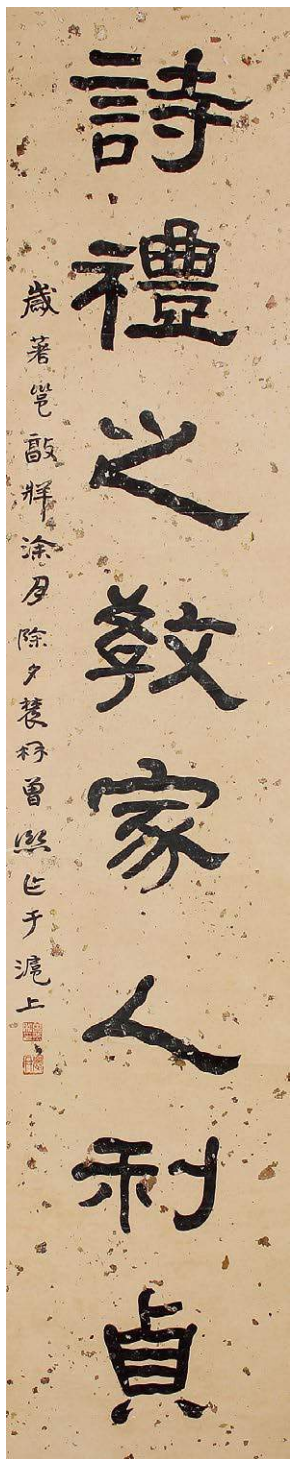 詩禮之敎家人利貞
歲著邕敦牂涂月除夕農髯曾熙作于滬上